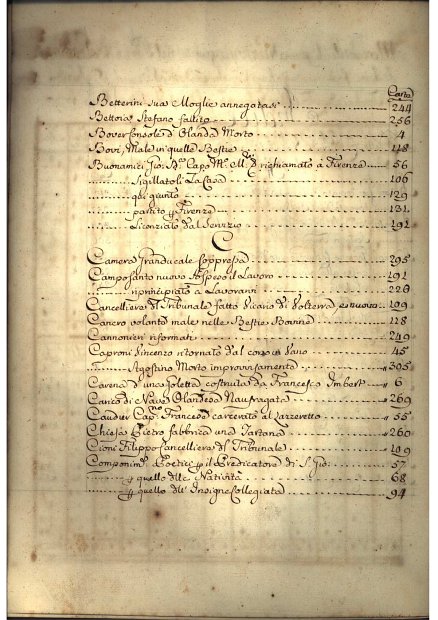 Carta
Betterini sua Moglie annegatasi 244
Bettoia Stefano fallito 256
Bover Console d'Olanda Morto 4
Bovi, Male in quelle Bestie 118
Buonamici Gio: Capo richiamato a Firenze 56
Sigillatoli La Casa 106
qui giunto 129
partito p Firenze 131
Licenziato dal Servizio 191
C
Camera Granducale soppressa 295
Camposanto nuovo sospeso il Lavoro 191
riprincipiato a Lavorarvi 228
Cancelliere del Tribunale fatto Vicario di Volterra e nuovo 199
Cancro volante male nelle Bestie Bovine 118
Cannonieri riformati 240
Caproni Vincenzo ritornato dal corso in 45
Agostino Morto improvisamente 305
Carena d'una goletta costruita da Francesco Imbert 6
Carico di Nave Olandese Naufragata 269
Caudier Cap. Francese carcerato al Lazzeretto 55
Chiesa Pietro fabbrica una Tartana 260
Cioni Filippo Cancelliere del Tribunale 199
Componim. Poetici p il Predicatore di S. Gio: 57
p quello della Natività 68
p quello dell' Insigne Collegiata 94